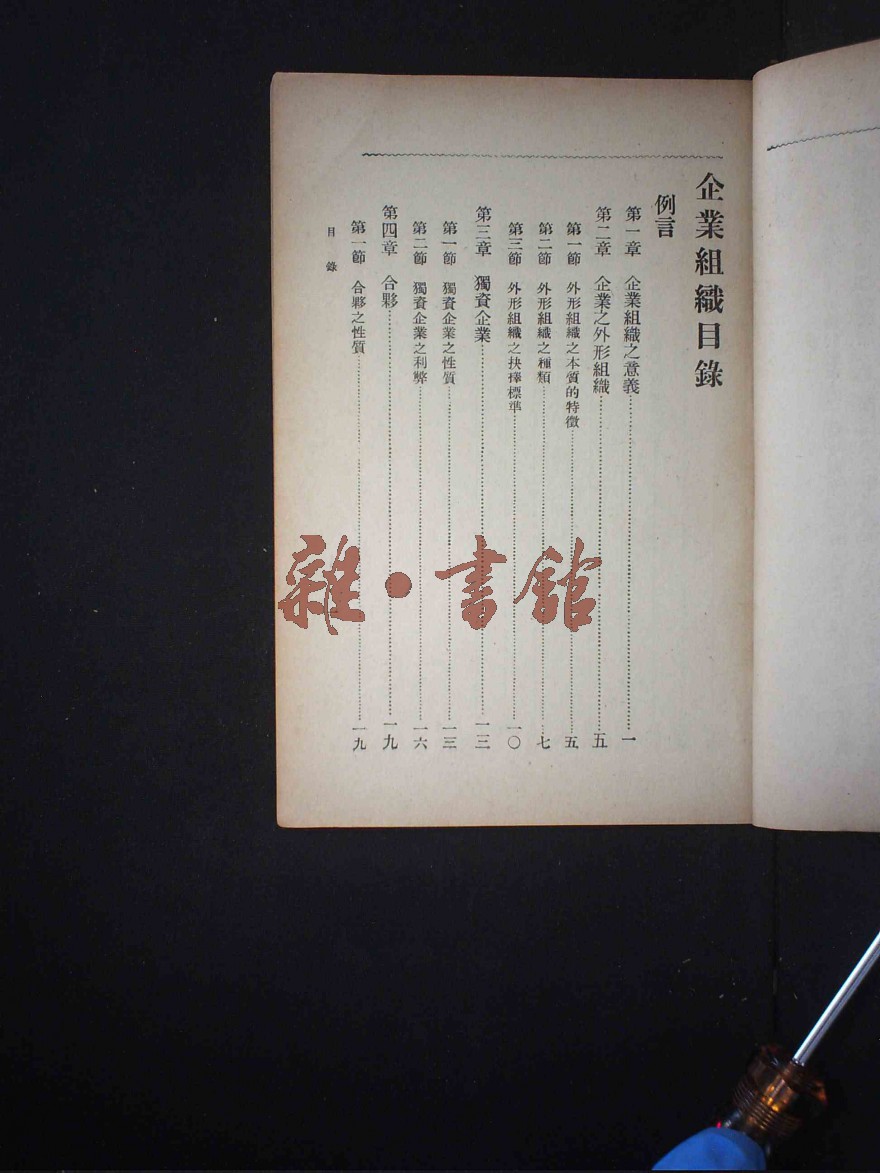 企業組織目錄
例言
第一章 企業組織之意義………一
第二章 企業之外形組織………五
第一節 外形組織之本質的特徵………五
第二節 外形組織之種類………七
第三節 外形組織之抉擇標準………一〇
第三章 獨資企業………一三
第一節 獨資企業之性質………一三
第二節 獨資企業之利弊………一六
第四章 合夥………一九
第一節 合夥之性質………一九
目錄
雜·書館